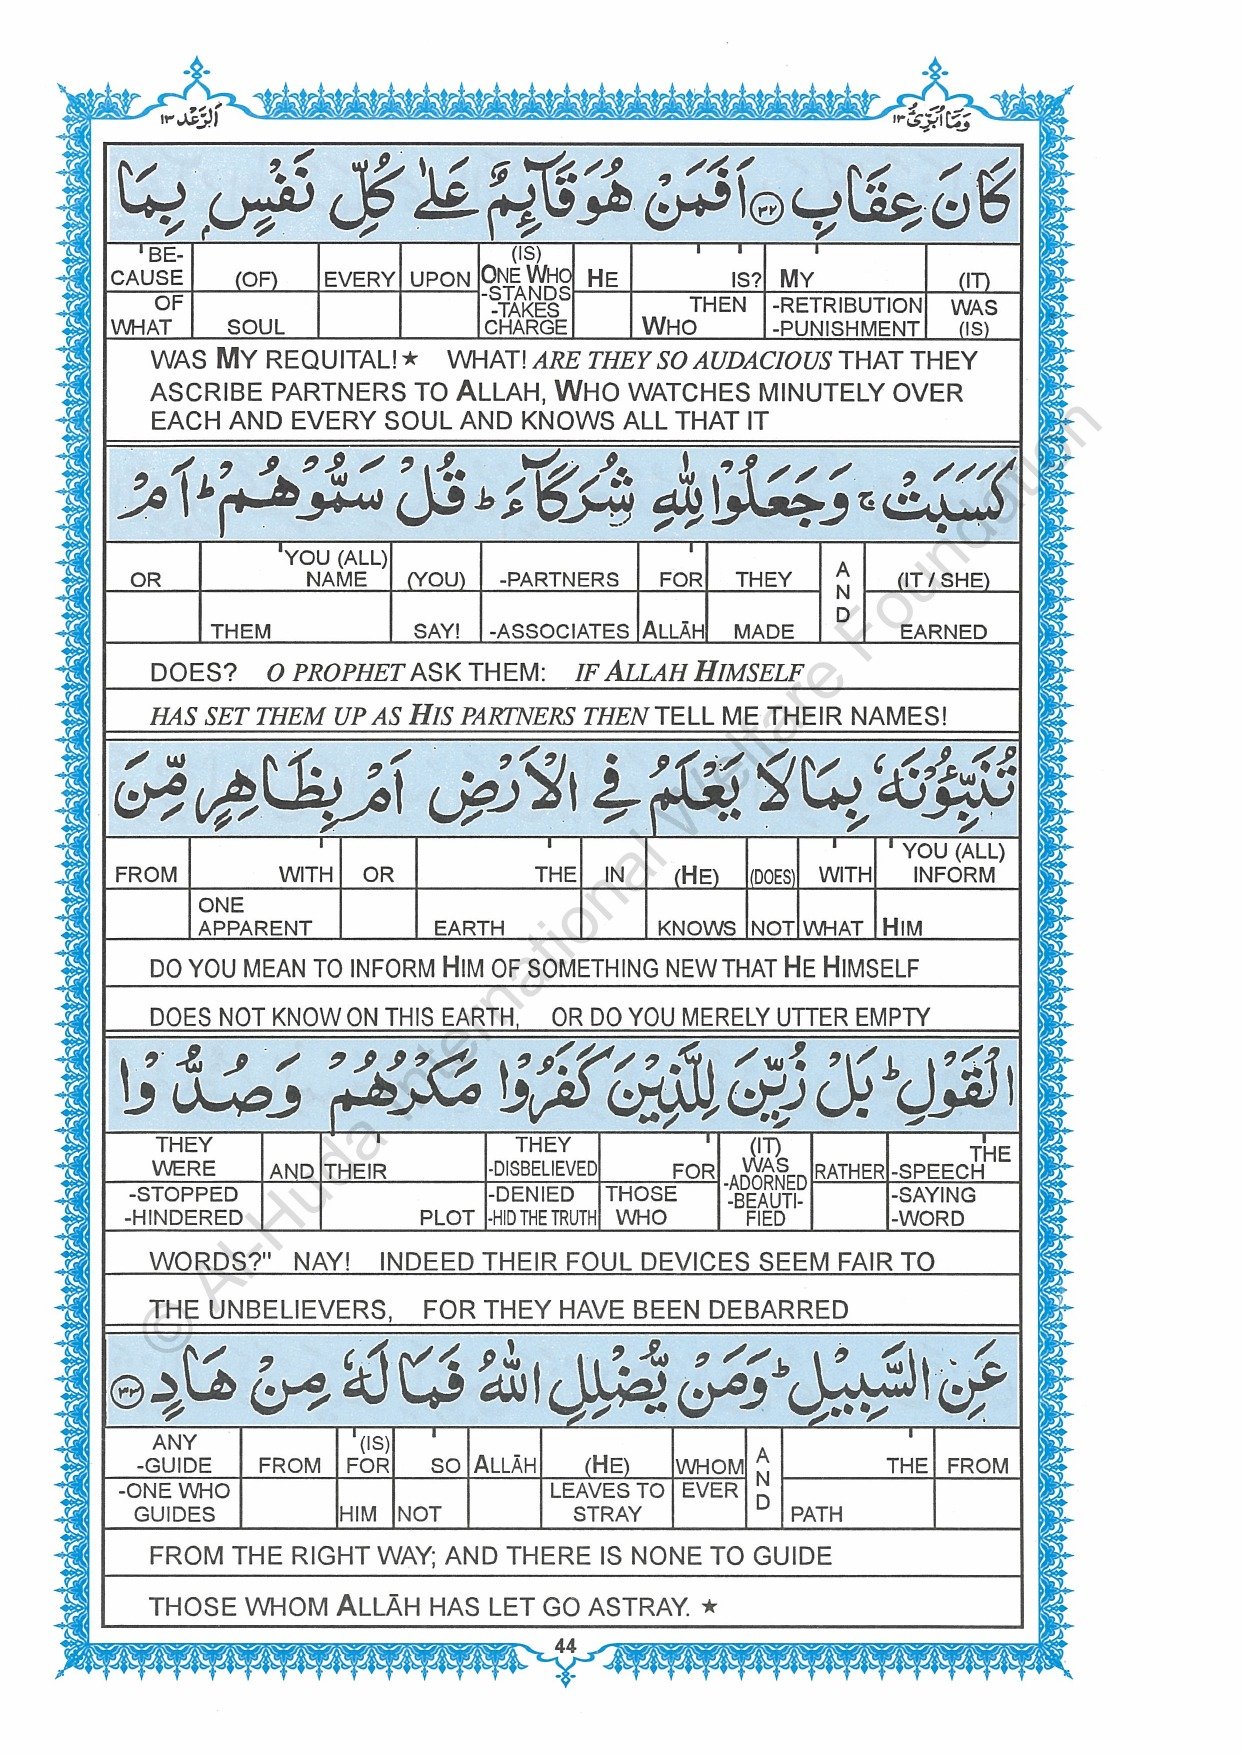 اَلرَّعْد ١٣
وَمَآ اُبَرِّئُ ١٣
كَانَ عِقَابِ ﴿٣٢﴾ اَفَمَنْ هُوَ قَآئِمٌ عَلٰى كُلِّ نَفْسٍۭ بِمَا
BE- (IS)
CAUSE (OF) EVERY UPON ONE WHO HE IS? MY (IT)
-STANDS
OF -TAKES THEN -RETRIBUTION WAS
WHAT SOUL CHARGE WHO -PUNISHMENT (IS)
WAS MY REQUITAL!★ WHAT! ARE THEY SO AUDACIOUS THAT THEY
ASCRIBE PARTNERS TO ALLAH, WHO WATCHES MINUTELY OVER
EACH AND EVERY SOUL AND KNOWS ALL THAT IT
كَسَبَتْ ۚ وَجَعَلُوْا لِلّٰهِ شُرَكَآءَ ؕ قُلْ سَمُّوْهُمْ ؕ اَمْ
YOU (ALL) A
OR NAME (YOU) -PARTNERS FOR THEY N (IT / SHE)
THEM SAY! -ASSOCIATES ALLĀH MADE D EARNED
DOES? O PROPHET ASK THEM: IF ALLAH HIMSELF
HAS SET THEM UP AS HIS PARTNERS THEN TELL ME THEIR NAMES!
تُنَبِّـُٔوْنَهٗ بِمَا لَا يَعْلَمُ فِى الْاَرْضِ اَمْ بِظَاهِرٍ مِّنَ
YOU (ALL)
FROM WITH OR THE IN (HE) (DOES) WITH INFORM
ONE
APPARENT EARTH KNOWS NOT WHAT HIM
DO YOU MEAN TO INFORM HIM OF SOMETHING NEW THAT HE HIMSELF
DOES NOT KNOW ON THIS EARTH, OR DO YOU MERELY UTTER EMPTY
الْقَوْلِ ؕ بَلْ زُيِّنَ لِلَّذِيْنَ كَفَرُوْا مَكْرُهُمْ وَصُدُّوْا
THEY THEY (IT) THE
WERE AND THEIR -DISBELIEVED FOR WAS RATHER -SPEECH
-ADORNED
-STOPPED -DENIED THOSE -BEAUTI- -SAYING
-HINDERED PLOT -HID THE TRUTH WHO FIED -WORD
WORDS?" NAY! INDEED THEIR FOUL DEVICES SEEM FAIR TO
THE UNBELIEVERS, FOR THEY HAVE BEEN DEBARRED
عَنِ السَّبِيْلِ ؕ وَمَنْ يُّضْلِلِ اللّٰهُ فَمَا لَهٗ مِنْ هَادٍ ﴿٣٣﴾
ANY (IS) A
-GUIDE FROM FOR SO ALLĀH (HE) WHOM N THE FROM
-ONE WHO LEAVES TO EVER D
GUIDES HIM NOT STRAY PATH
FROM THE RIGHT WAY; AND THERE IS NONE TO GUIDE
THOSE WHOM ALLĀH HAS LET GO ASTRAY. ★
44
© Al-Huda International Welfare Foundation